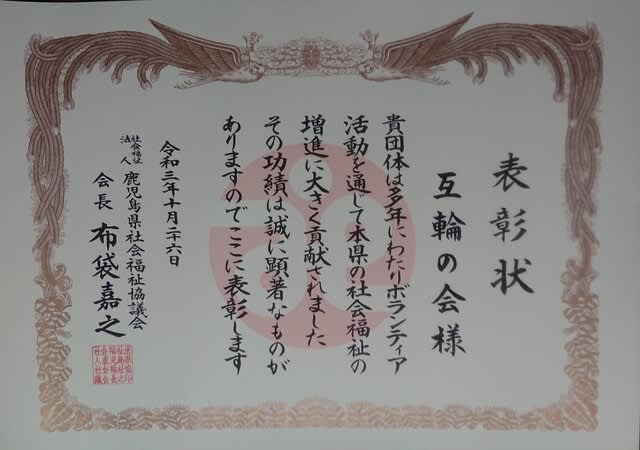 表彰状
互輪の会様
貴団体は多年にわたりボランティア
活動を通じて本県の社会福祉の
増進に大きく貢献されました
その功績は誠に顕著なものが
ありますのでここに表彰します
令和三年十月二十六日
社会福祉法人 鹿児島県社会福祉協議会
会長 布袋嘉之